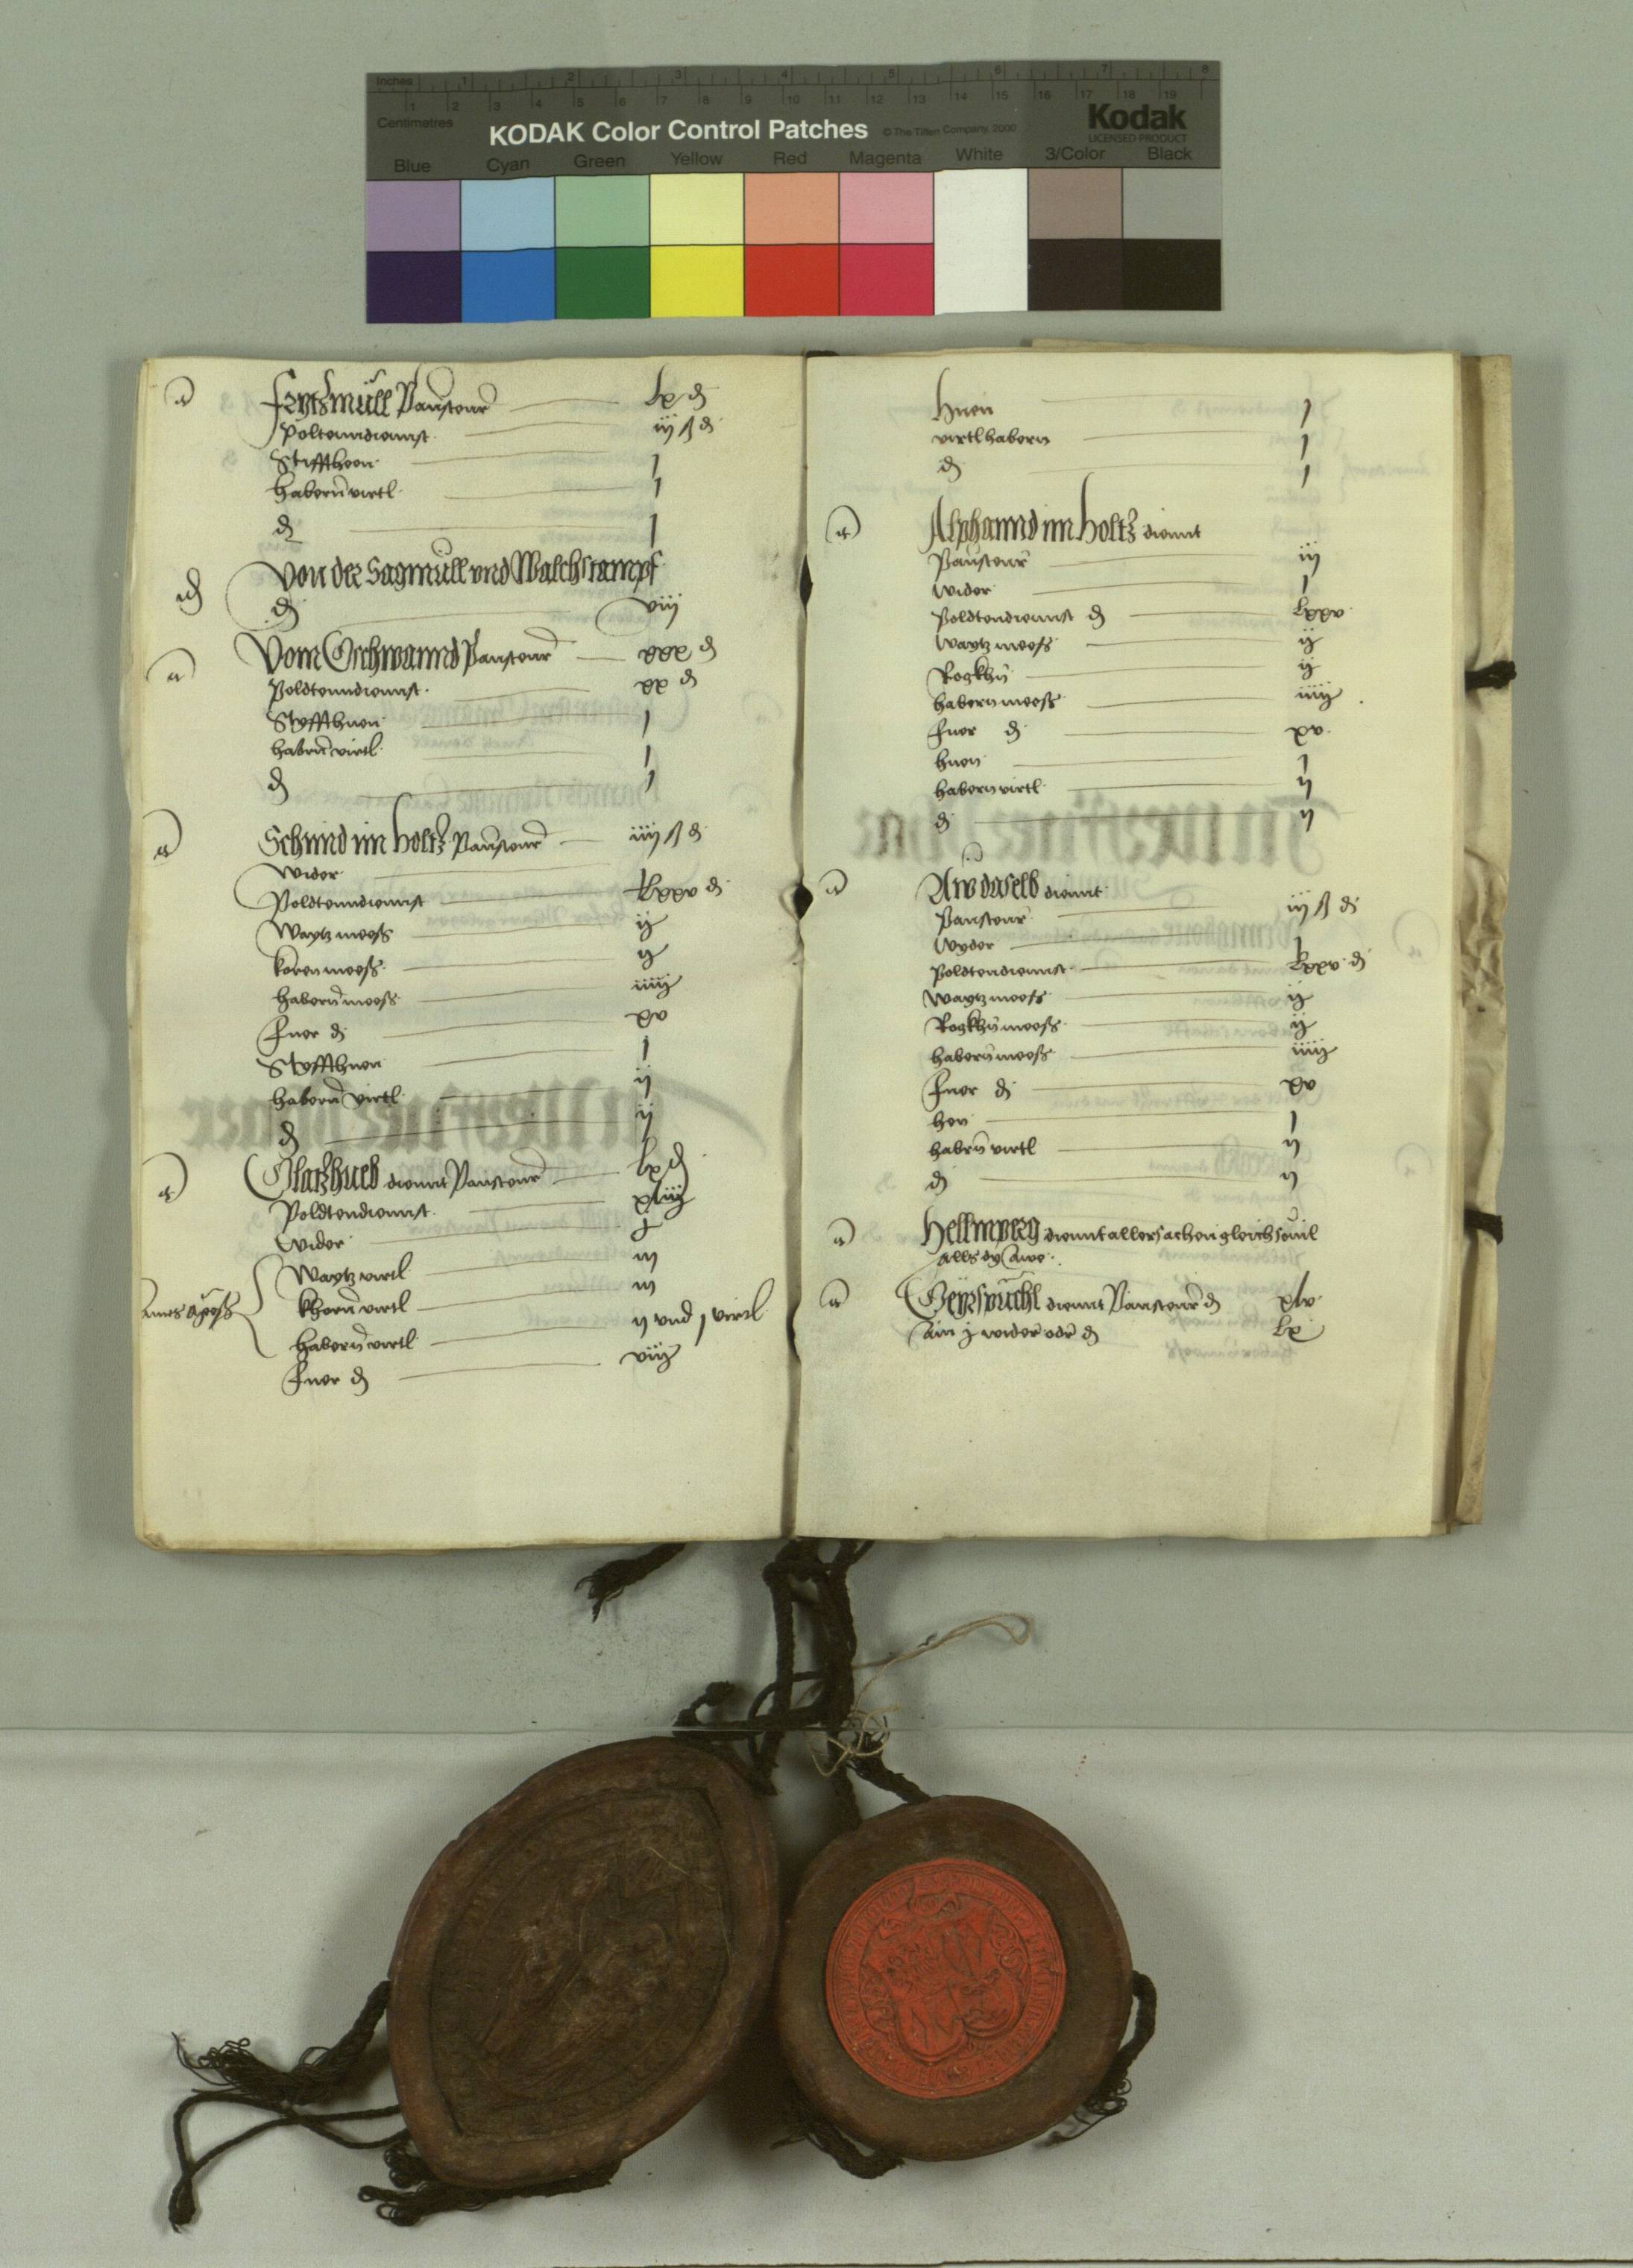 Inches 1 2 3 4 5 6 7 8
1 2 3 4 5 6 7 8 9 10 11 12 13 14 15 16 17 18 19
Centimetres
KODAK Color Control Patches © The Tiffen Company, 2000 Kodak
LICENSED PRODUCT
Blue Cyan Green Yellow Red Magenta White 3/Color Black
Pansteur lx d
Poltenndiennst iij ß d
Stiffthoen j
habern virtl j
d j
Von der Sagmüll vnd Walchstampf
d viij
Vom Gschwannd Pansteur xxx d
Poldtenndiennst xx d
Styffthuen j
habrn virtl j
d j
Schmid im holtz Pansteur iiij ß d
Wider
Poldtenndiennst lxxv d
Waytz mess ij
koren mess ij
habern mess iiij
Fuer d xv
Styffthuen j
habern virtl ij
d ij
diennt Pansteur lx d
Poldtendiennst xliij
Wider
Waytz virtl iij
khorn virtl iij
habern virtl ij vnd j virtl
Fuer d viij
Huen j
virtl habern j
d j
im holtz diennt
Pansteur iij
Wider j
Poldtendiennst d lxxv
Waytz mess ij
Rogkhn ij
habern mess iiij
Fuer d xv
huen j
habern virtl ij
d ij
Aw daselb diennt
Pansteur iij ß d
Wyder j
Poldtendiennst lxxv d
Waytz mess ij
Rogkhn mess ij
habern mess iiij
Fuer d xv
hen j
habrn virtl ij
d ij
Hellmperg diennt aller sachen gleich souil
alls dy Awe
diennt Pansteur d xlv
Ain j wider oder d lx